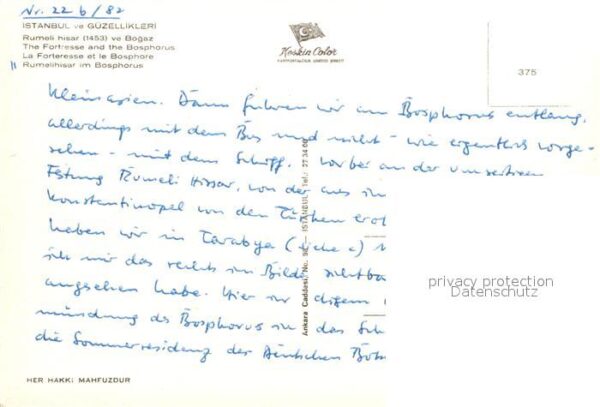 Nr. 22 b / 82
ISTANBUL ve GÜZELLİKLERİ
Rumeli hisar (1453) ve Boğaz
The Fortresse and the Bosphorus
La Forteresse et le Bosphore
" Rumelihisar im Bosphorus
Keskin Color
375
Kleinasien. Dann fuhren wir am Bosphorus entlang,
allerdings mit dem Bus und nicht - wie eigentlich vorge-
sehen - mit dem Schiff. Vorbei an der
Festung Rumeli Hissar, von der aus
Konstantinopel von den Türken erob
haben wir in Tarabya (siehe c)
ich mir das rechts im Bilde sichtba
angesehen habe. Hier in diesem
mündung des Bosphorus in das Sch
die Sommerresidenz der Deutschen Bots
Ankara Caddesi, No. 98 — ISTANBUL Tel.: 27 34 00
privacy protection
Datenschutz
HER HAKKI MAHFUZDUR